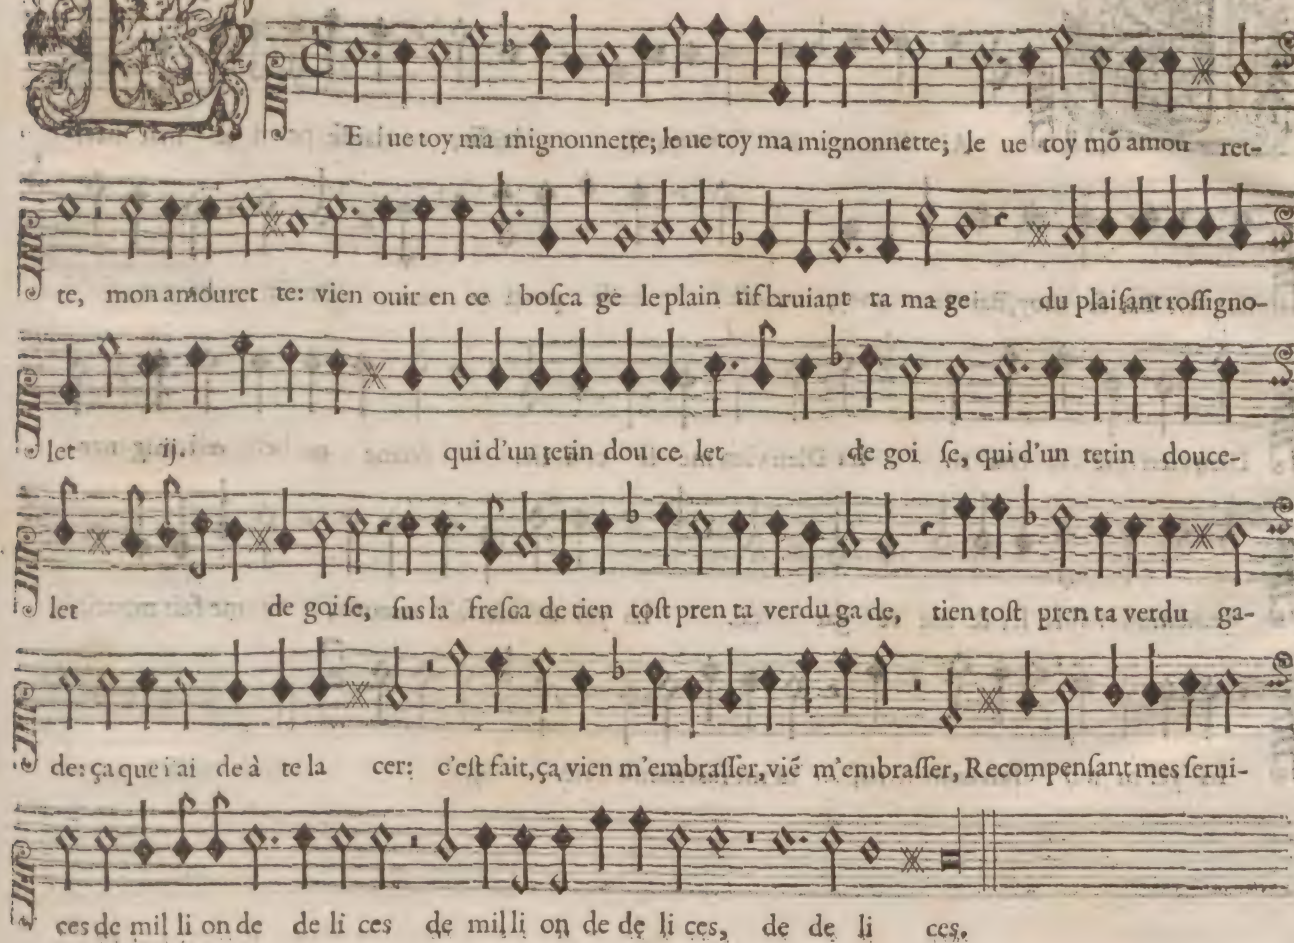 LE ue toy ma mignonnette; leue toy ma mignonnette; le ue toy mõ amou ret-
te, mon amouret te: vien ouir en ce bosca ge le plain tif bruiant ra ma ge du plaisant rossigno-
let ij. qui d'un tetin dou ce let de goi se, qui d'un tetin douce-
let de goi se, sus la fresca de tien tost pren ta verdu ga de, tien tost pren ta verdu ga-
de: ça que i ai de à te la cer: c'est fait, ça vien m'embrasser, viẽ m'embrasser, Recompensant mes serui-
ces de mil li on de de li ces de milli on de de li ces, de de li ces.